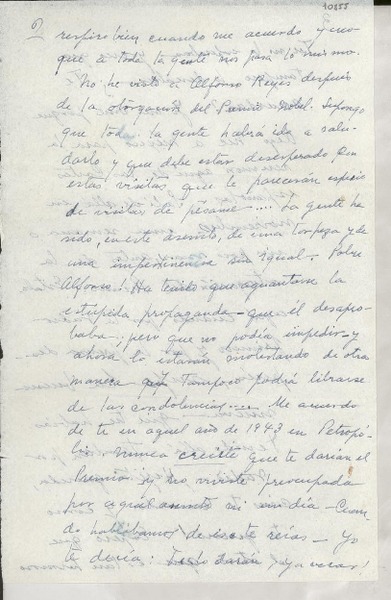 10855
2
respiro bien cuando me acuerdo y creo
que a toda la gente nos pasa lo mismo.
No he visto a Alfonso Reyes después
de la otorgación del Premio Nobel. Supongo
que toda la gente habrá ida a salu-
darlo y que debe estar desesperado con
estas visitas, que le parecerán especie
de visitas de pésame.... La gente ha
sido, en este asunto, de una torpeza y de
una impertinencia sin igual. Pobre
Alfonso! Ha tenido que aguantarse la
estúpida propaganda que él desapro-
baba, pero que no podía impedir y
ahora lo estarán molestando de otra
manera Tampoco podrá librarse
de las condolencias.... Me acuerdo
de ti en aquel año de 1943 en Petrópo-
lis. Nunca creíste que te darían el
Premio y no viviste preocupada
por aquel asunto ni un día. Cuan-
do hablábamos de este reías. Yo
te decía: Te lo darán ya veras!